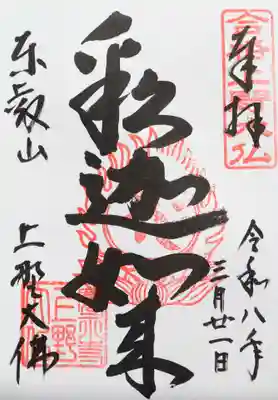 奉拝
令和八年
三月廿一日
釈迦如来
東叡山
上野大佛